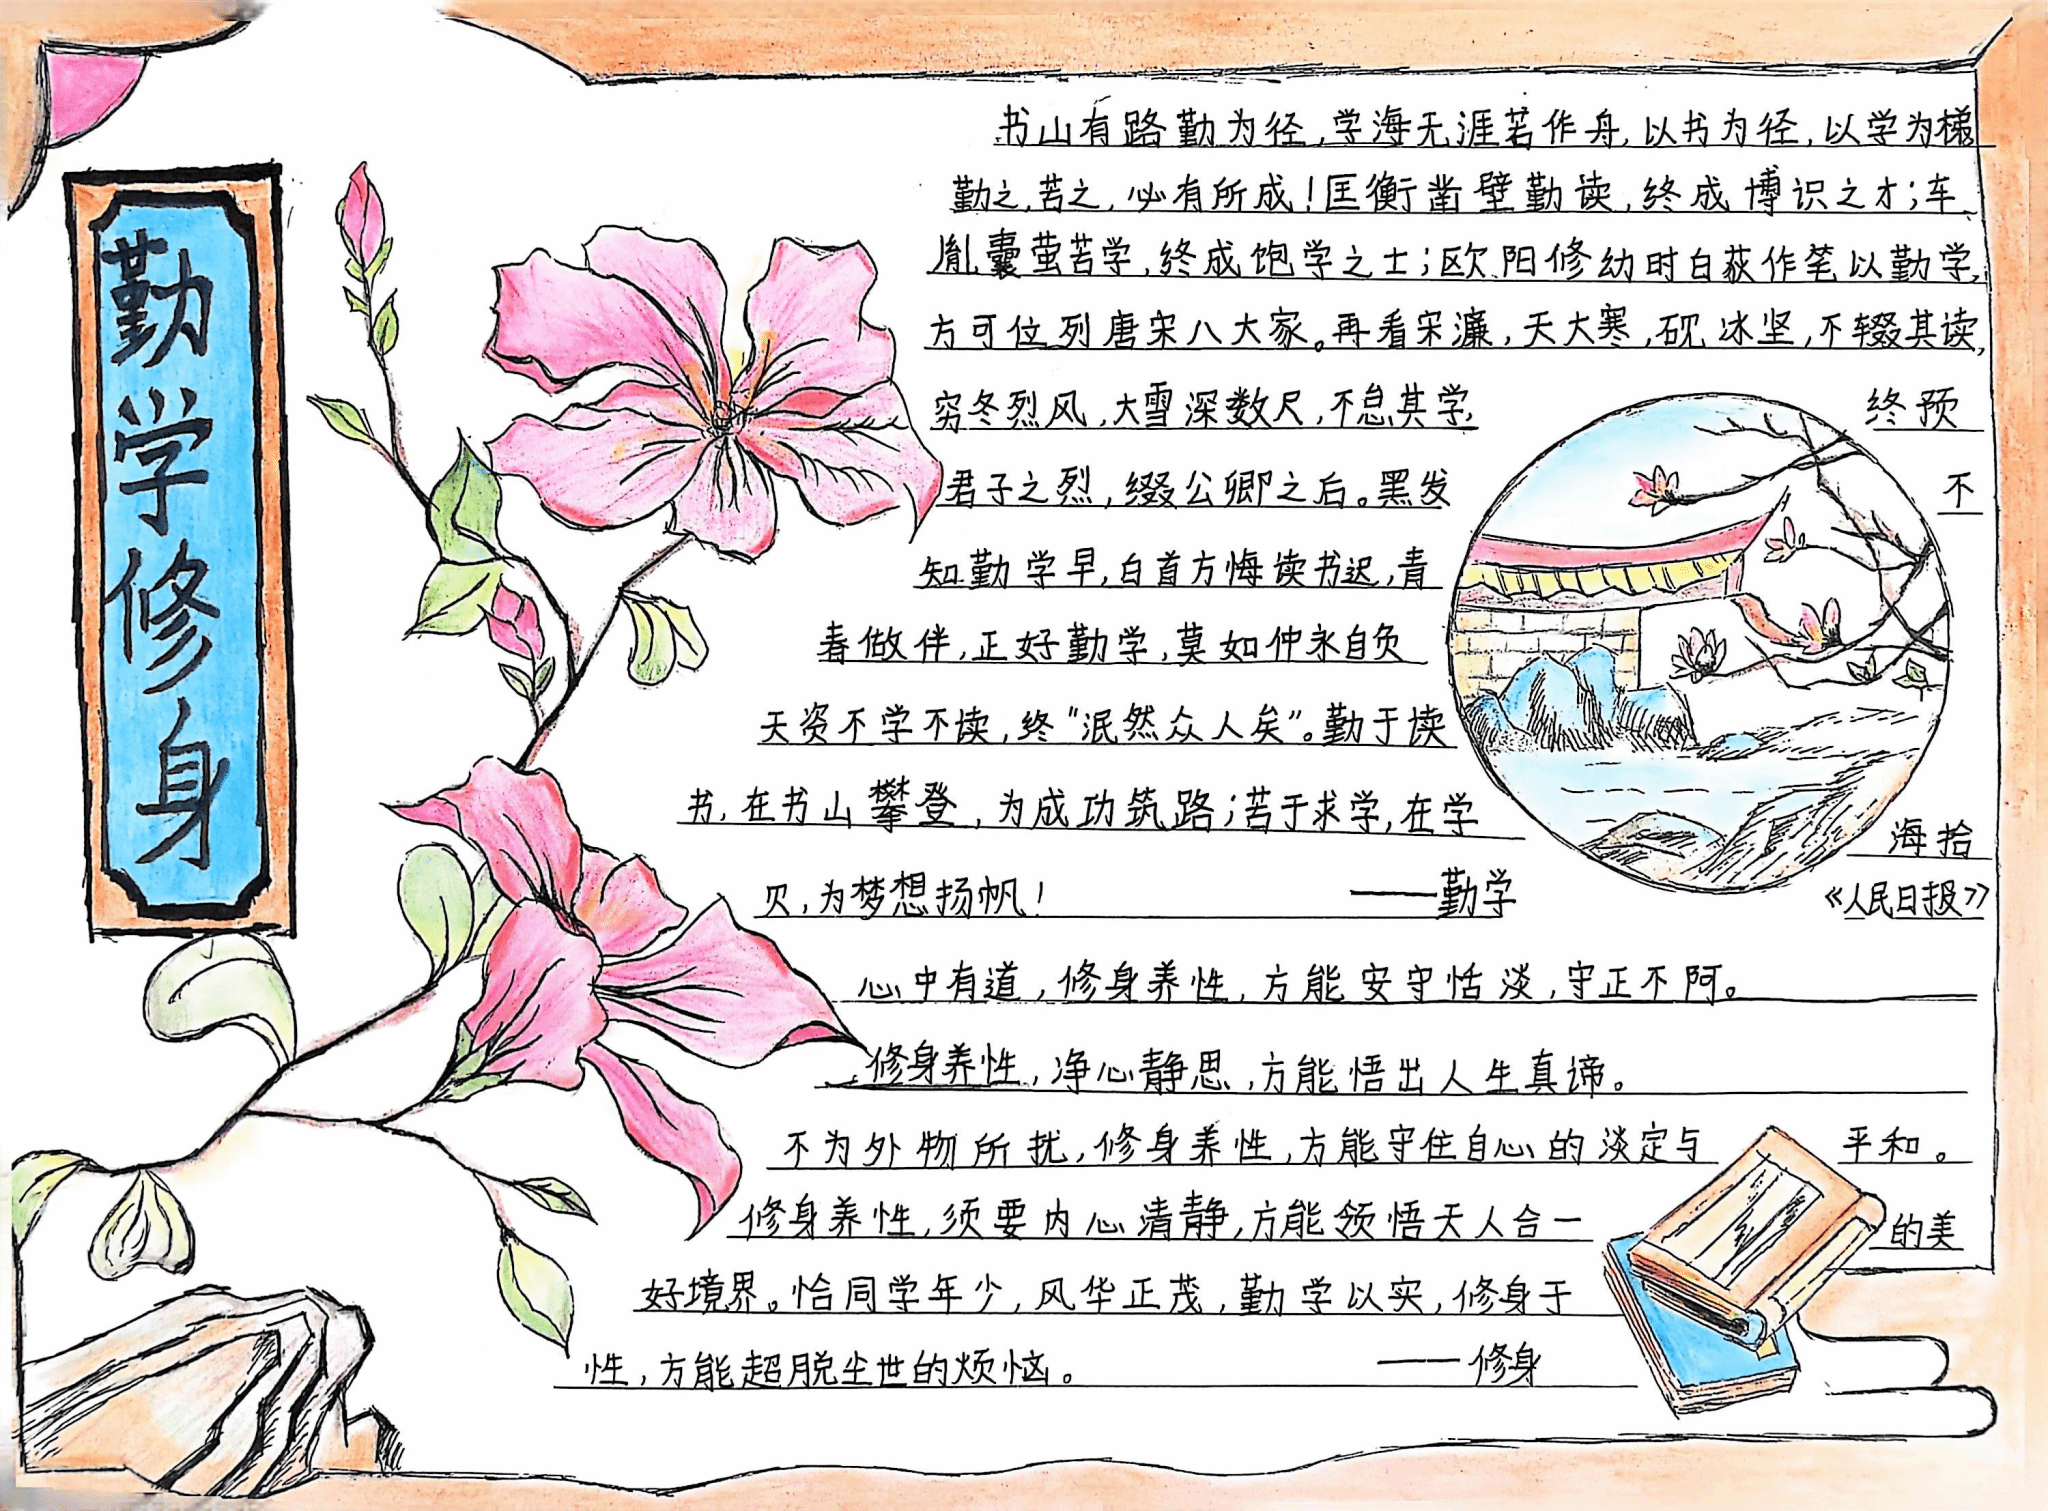 勤学修身
书山有路勤为径，学海无涯苦作舟，以书为径，以学为梯
勤之，苦之，必有所成！匡衡凿壁勤读，终成博识之才；车
胤囊萤苦学，终成饱学之士；欧阳修幼时白荻作笔以勤学，
方可位列唐宋八大家。再看宋濂，天大寒，砚冰坚，不辍其读，
穷冬烈风，大雪深数尺，不怠其学，终预
君子之烈，缀公卿之后。黑发不
知勤学早，白首方悔读书迟，青
春做伴，正好勤学，莫如仲永自负
天资不学不读，终“泯然众人矣”。勤于读
书，在书山攀登，为成功筑路；苦于求学，在学海拾
贝，为梦想扬帆！——勤学《人民日报》
心中有道，修身养性，方能安守恬淡，守正不阿。
修身养性，净心静思，方能悟出人生真谛。
不为外物所扰，修身养性，方能守住自心的淡定与平和。
修身养性，须要内心清静，方能领悟天人合一的美
好境界。恰同学年少，风华正茂，勤学以实，修身于
性，方能超脱尘世的烦恼。——修身